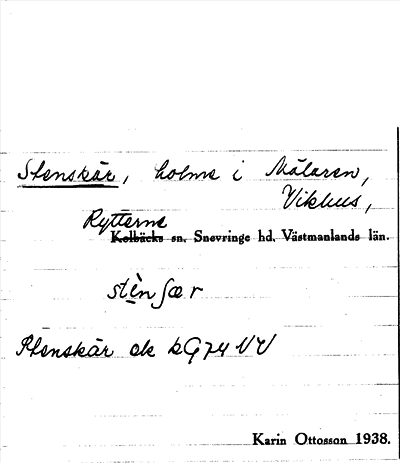 Stenskär, holme i Mälaren,
Vikhus,
Rytterne
Kolbäcks sn. Snevringe hd. Västmanlands län.
stè̱nʃær
Stenskär ek bG74 VV
Karin Ottosson 1938.